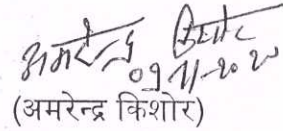 अमरेन्द्र किशोर
09-11-2020
(अमरेन्द्र किशोर)